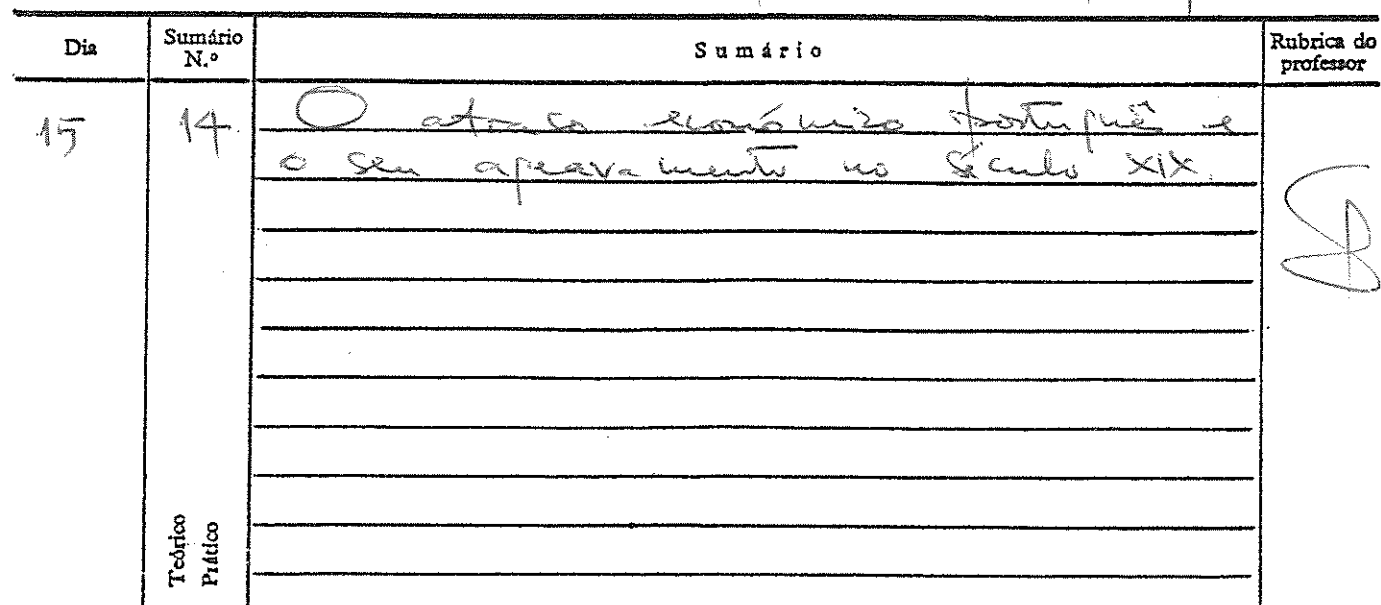 Dia Sumário N.º Sumário Rubrica do professor
15 14 O atraso económico português e
o seu agravamento no século XIX.
Teórico
Prático